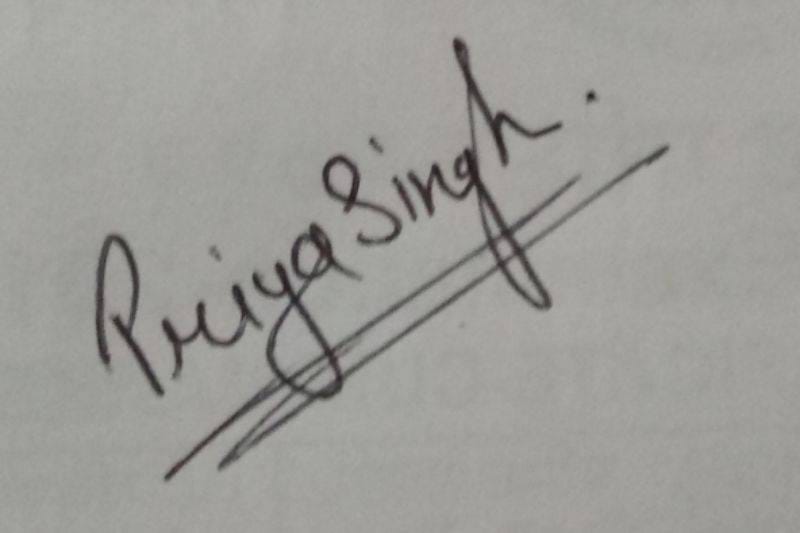 Priya Singh.